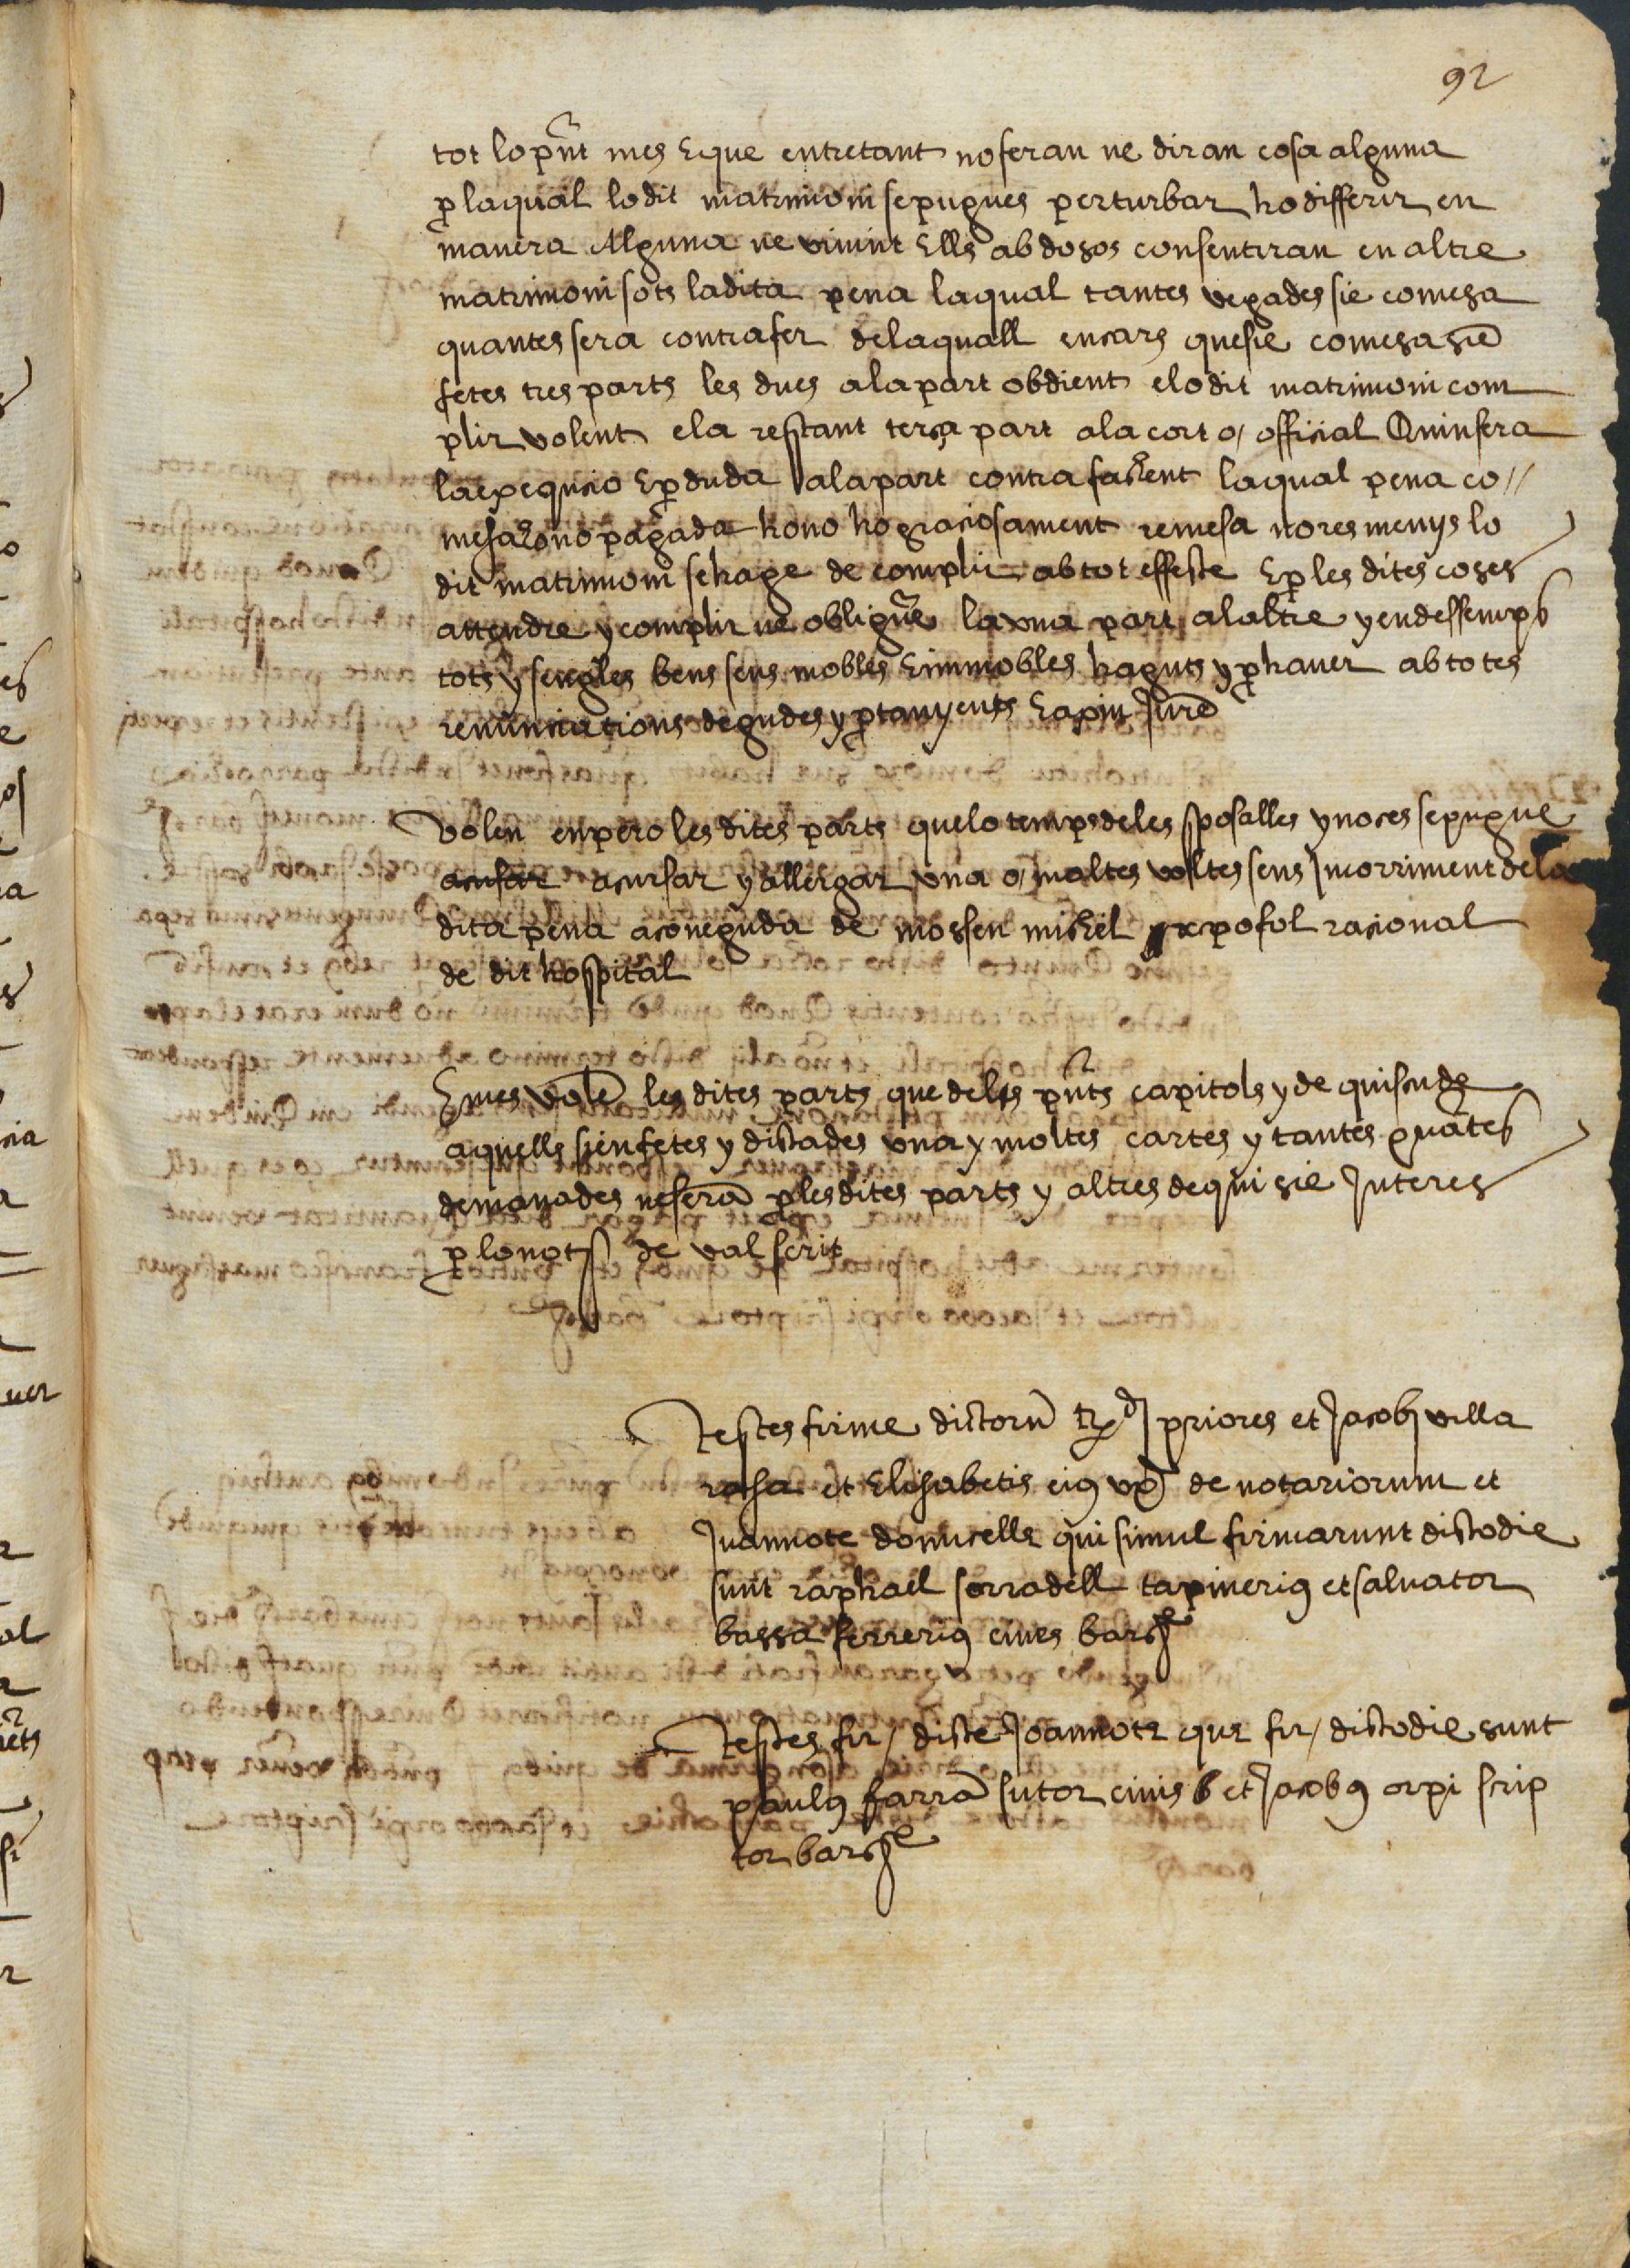 92
tot lo pñt mes E que entretant no feran ne diran cosa alguna
p laqual lo dit matrimoni se pugues perturbar ho differir en
manera Alguna ne vivint Ells abdosos consentiran en altre
matrimoni sots la dita pena laqual tantes vegades sie comesa
quantes sera contrafet de laquall en cars que sie comesa siē
fetes tres parts les dues a la part obdient e lo dit matrimoni com
plir volent e la restant terça part a la cort o/ official Qui nfera
la exequcio E p duda a la part contrafahent laqual pena co//
mesa o no pagada ho no ho graciosament remesa no res menys lo
dit matrimoni se hage de complir ab tot effecte E p les dites coses
attendre y complir ne obligūe la vna part al altre y endessemps
tots y sengles bens seus mobles E immobles haguts y p haver ab totes
renunciations degudes y ptanyents E axi u Jurē
Volen empero les dites parts que lo temps de les sposalles y noces se pugue
acusar acursar y allergar vna o/ moltes voltes sens Jncorriment de la
dita pena a coneguda de mossen michel expofol racional
de dit hospital
E mes volē les dites parts que dels pñts capitols y de quiscu de
aquells sien fetes y dictades vna y moltes cartes y tantes quātes
demanades ne serā p les dites parts y altres de qui sie Jnteres
p lo not de val scrit
Testes firme dictorū priores et Jacobj villa
rasa et Elisabetis eiꝰ vx de notariorum et
Juannote domicelle qui simul firmarunt dicto die
sunt raphael serradell tapineriꝰ et salvator
bassa ferreriꝰ cives barchͤ
Testes fir/ dicte Joannote que fir/ dicto die sunt
paulꝰ farrā sutor civis b et Jacobꝰ orpi scrip
tor barchͤ